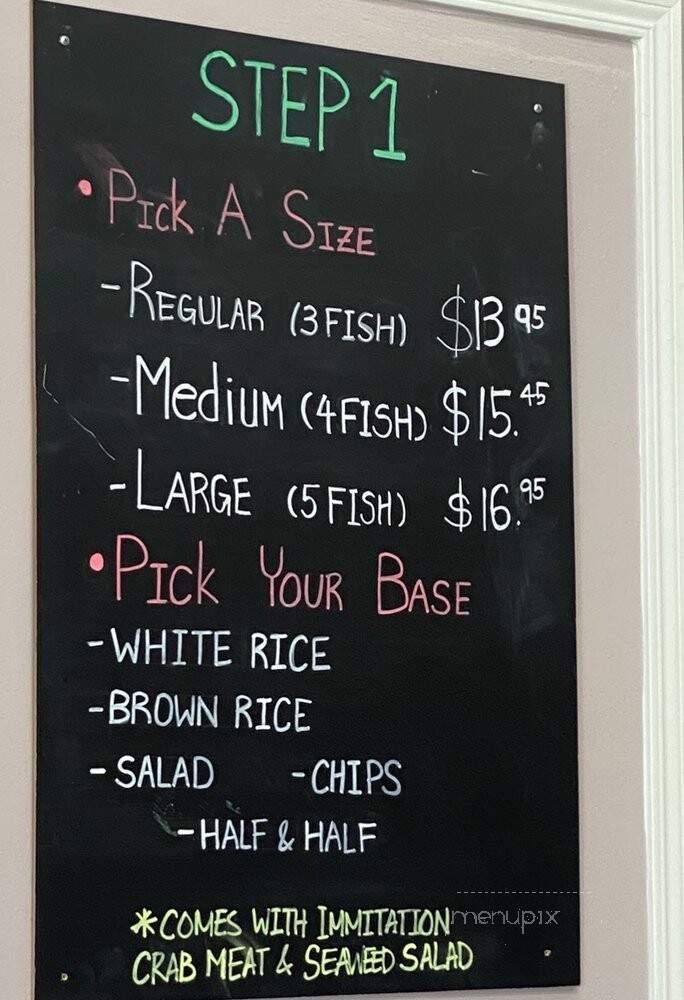 STEP 1
• PIck A SIZE
- REGULAR (3 FISH) $13 95
- MedIUM (4 FISH) $15.45
- LARGE (5 FISH) $16.95
• PICk YOUR BASE
- WHITE RICE
- BROWN RICE
- SALAD - CHIPS
- HALF & HALF
* COMES WITH IMMITATION
CRAB MEAT & SEAWEED SALAD
menupix